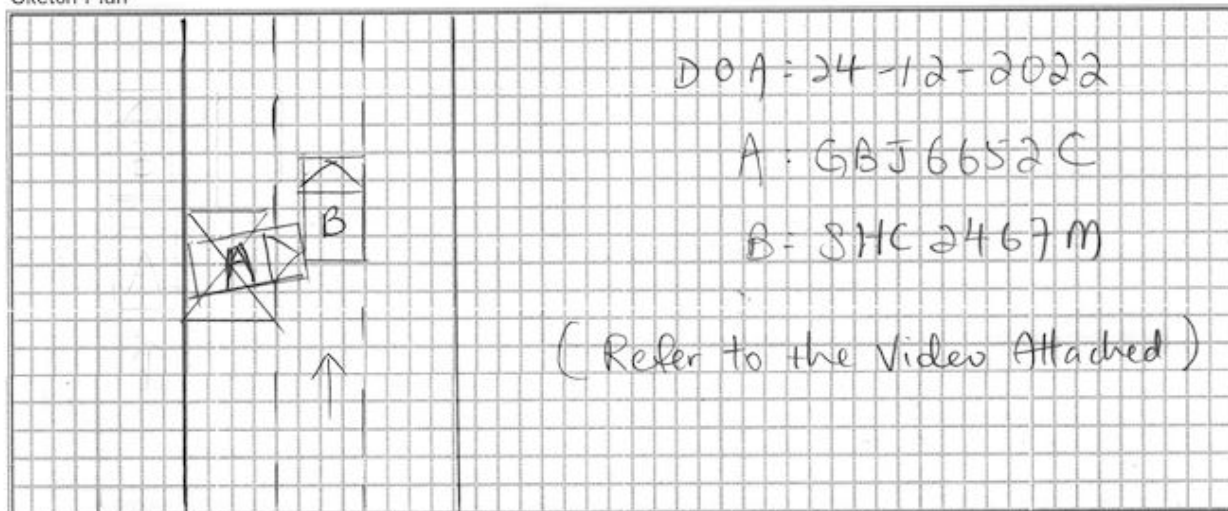 Sketch Plan
DOA: 24-12-2022
A: GBJ6652C
B: SHC2467M
(Refer to the Video Attached)
A
B